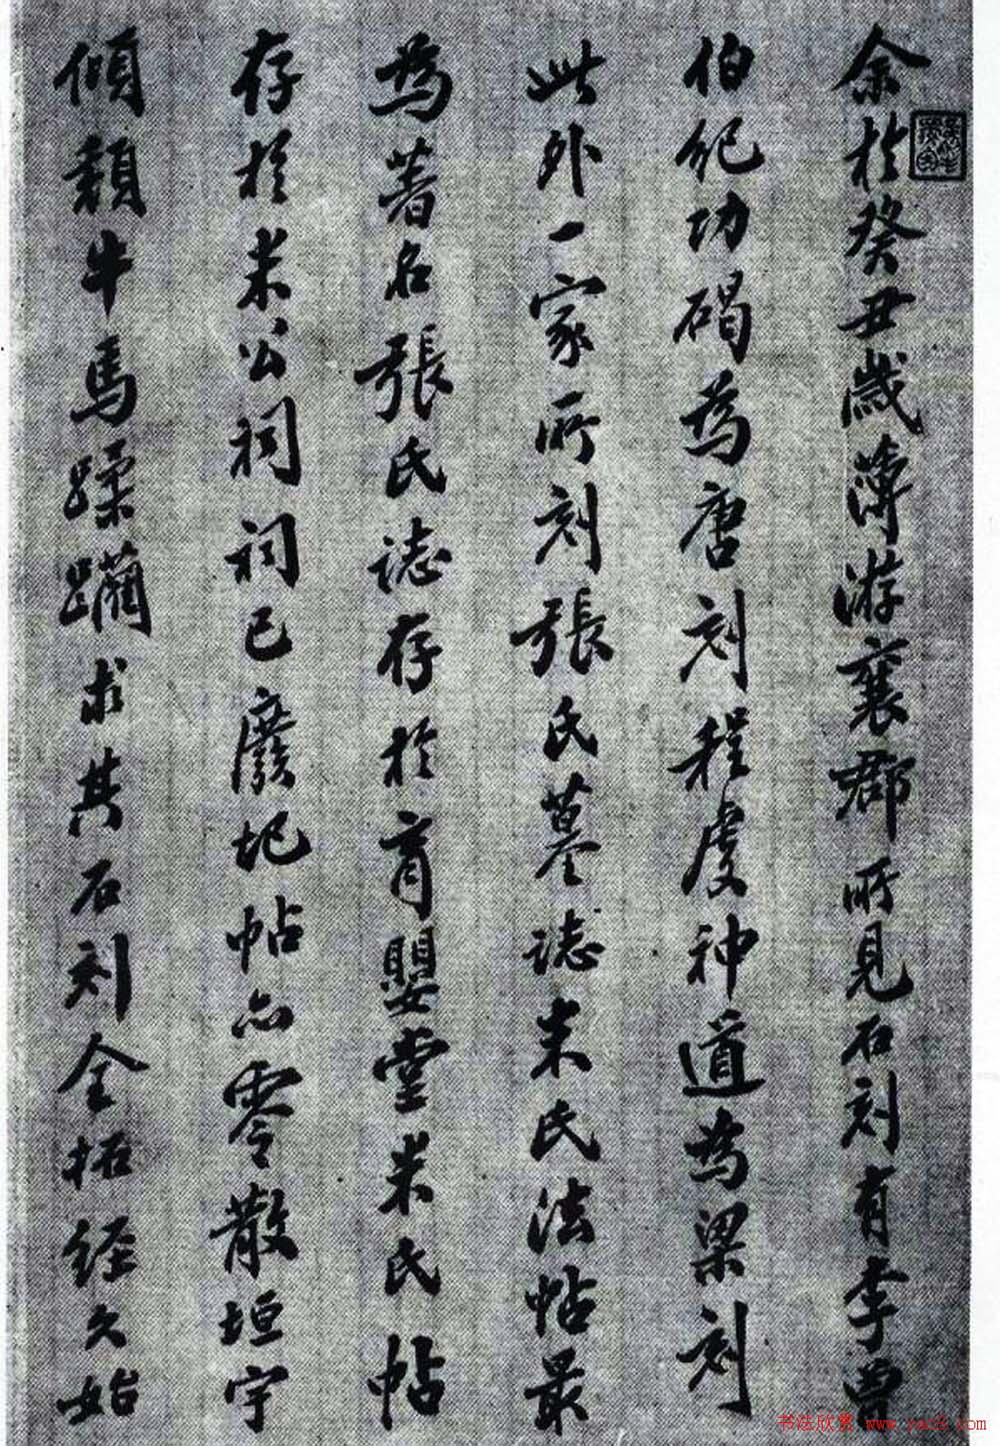 余於癸丑歲薄游襄郡所見石刻有李曾
伯紀功碣為唐刻程虔神道為梁刻
此外一家所刻張氏墓誌米氏法帖最
為著名張氏誌存於育嬰堂米氏帖
存於米公祠祠已廢圮帖亦零散垣宇
傾頹牛馬蹂躪求其石刻全拓經久始
书法欣赏 www.yac8.com